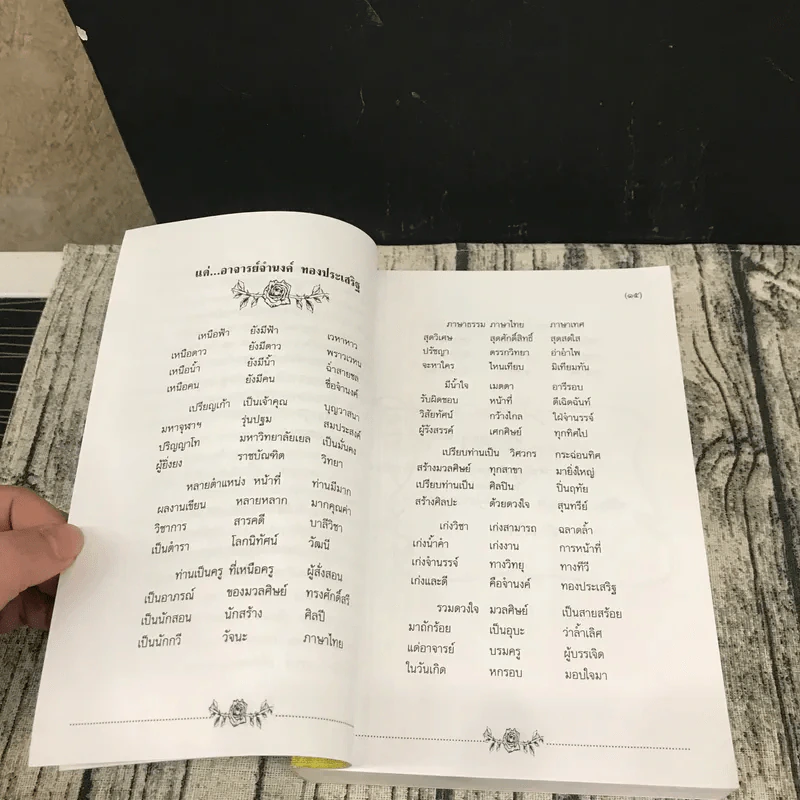 แด่...อาจารย์จำนงค์ ทองประเสริฐ
เหนือฟ้า ยังมีฟ้า เวหาหาว
เหนือดาว ยังมีดาว พราวเวหน
เหนือน้ำ ยังมีน้ำ ฉ่ำสายชล
เหนือคน ยังมีคน ชื่อจำนงค์
เปรียญเก้า เป็นเจ้าคุณ บุญวาสนา
มหาจุฬาฯ รุ่นปฐม สมประสงค์
ปริญญาโท มหาวิทยาลัยเยล เป็นมั่นคง
ผู้ยิ่งยง ราชบัณฑิต วิทยา
หลายตำแหน่ง หน้าที่ ท่านมีมาก
ผลงานเขียน หลายหลาก มากคุณค่า
วิชาการ สารคดี บาลีวิชา
เป็นตำรา โลกนิทัศน์ วัฒนี
ท่านเป็นครู ที่เหนือครู ผู้สั่งสอน
เป็นอาภรณ์ ของมวลศิษย์ ทรงศักดิ์ศรี
เป็นนักสอน นักสร้าง ศิลปี
เป็นนักกวี วัจนะ ภาษาไทย
(๑๕)
ภาษาธรรม ภาษาไทย ภาษาเทศ
สุดวิเศษ สุดศักดิ์สิทธิ์ สุดสดใส
ปรัชญา ตรรกวิทยา อ่าอำไพ
จะหาใคร ไหนเทียบ มิเทียมทัน
มีน้ำใจ เมตตา อารีรอบ
รับผิดชอบ หน้าที่ ดีเฉิดฉันท์
วิสัยทัศน์ กว้างไกล ใฝ่จำนรรจ์
ผู้รังสรรค์ เศกศิษย์ ทุกทิศไป
เปรียบท่านเป็น วิศวกร กระฉ่อนทิศ
สร้างมวลศิษย์ ทุกสาขา มายิ่งใหญ่
เปรียบท่านเป็น ศิลปิน ปิ่นฤทัย
สร้างศิลปะ ด้วยดวงใจ สุนทรีย์
เก่งวิชา เก่งสามารถ ฉลาดล้ำ
เก่งน้ำคำ เก่งงาน การหน้าที่
เก่งจำนรรจ์ ทางวิทยุ ทางทีวี
เก่งและดี คือจำนงค์ ทองประเสริฐ
รวมดวงใจ มวลศิษย์ เป็นสายสร้อย
มาถักร้อย เป็นอุบะ ว่าล้ำเลิศ
แด่อาจารย์ บรมครู ผู้บรรเจิด
ในวันเกิด หกรอบ มอบใจมา